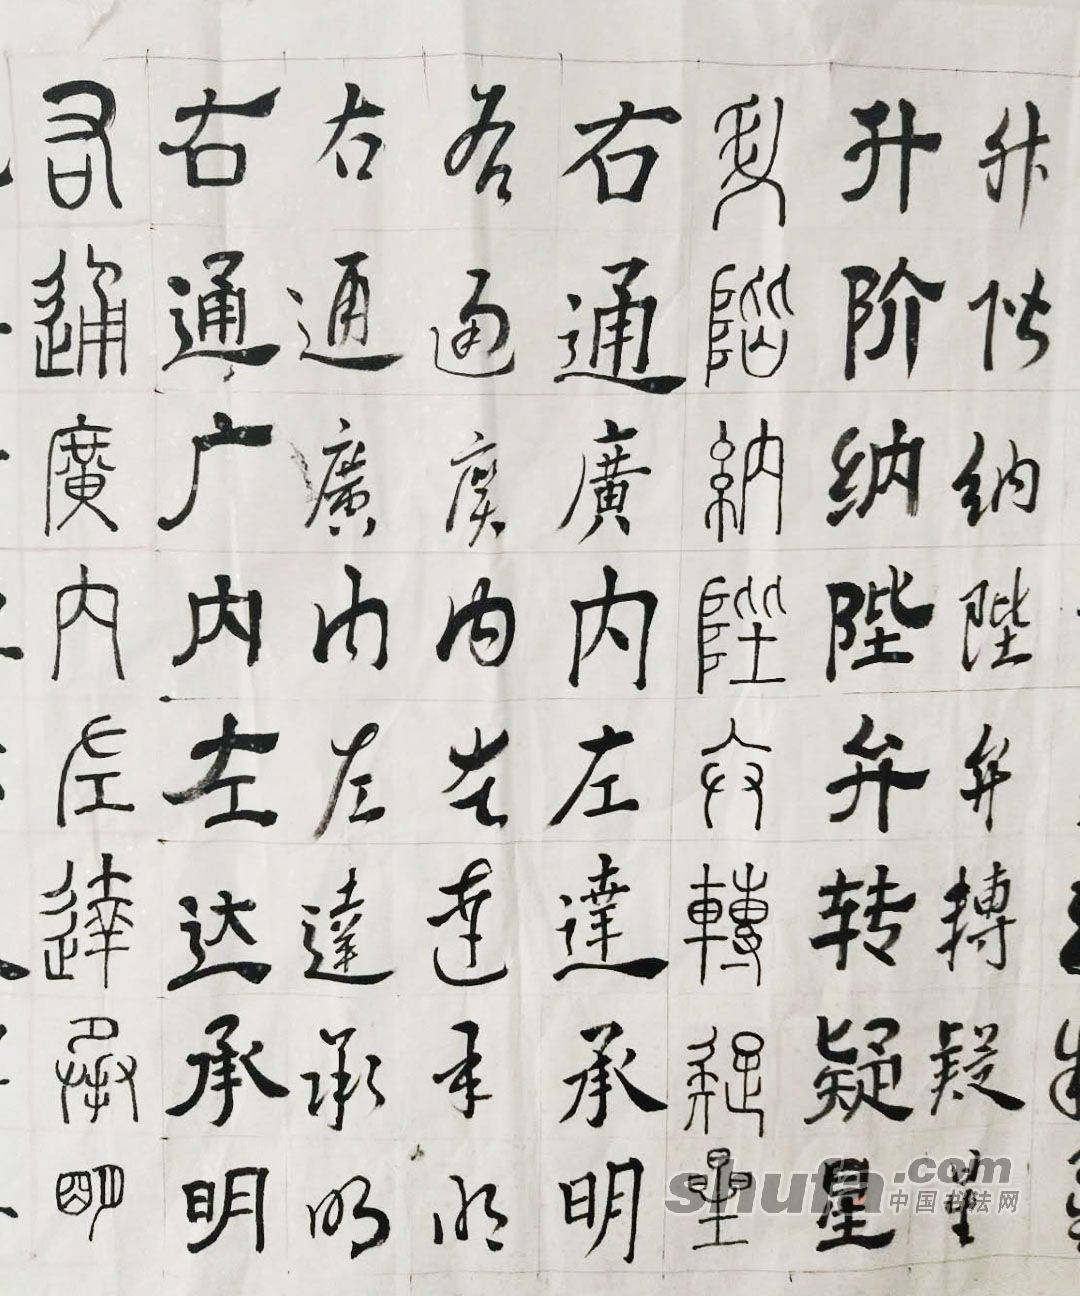 升階纳陛弁轉疑星
升阶纳陛弁转疑星
升階納陛弁轉疑星
右通廣内左達承明
右通廣内左達承明
右通廣内左達承明
右通广内左达承明
右通廣内左達承明
shufa.com
中国书法网